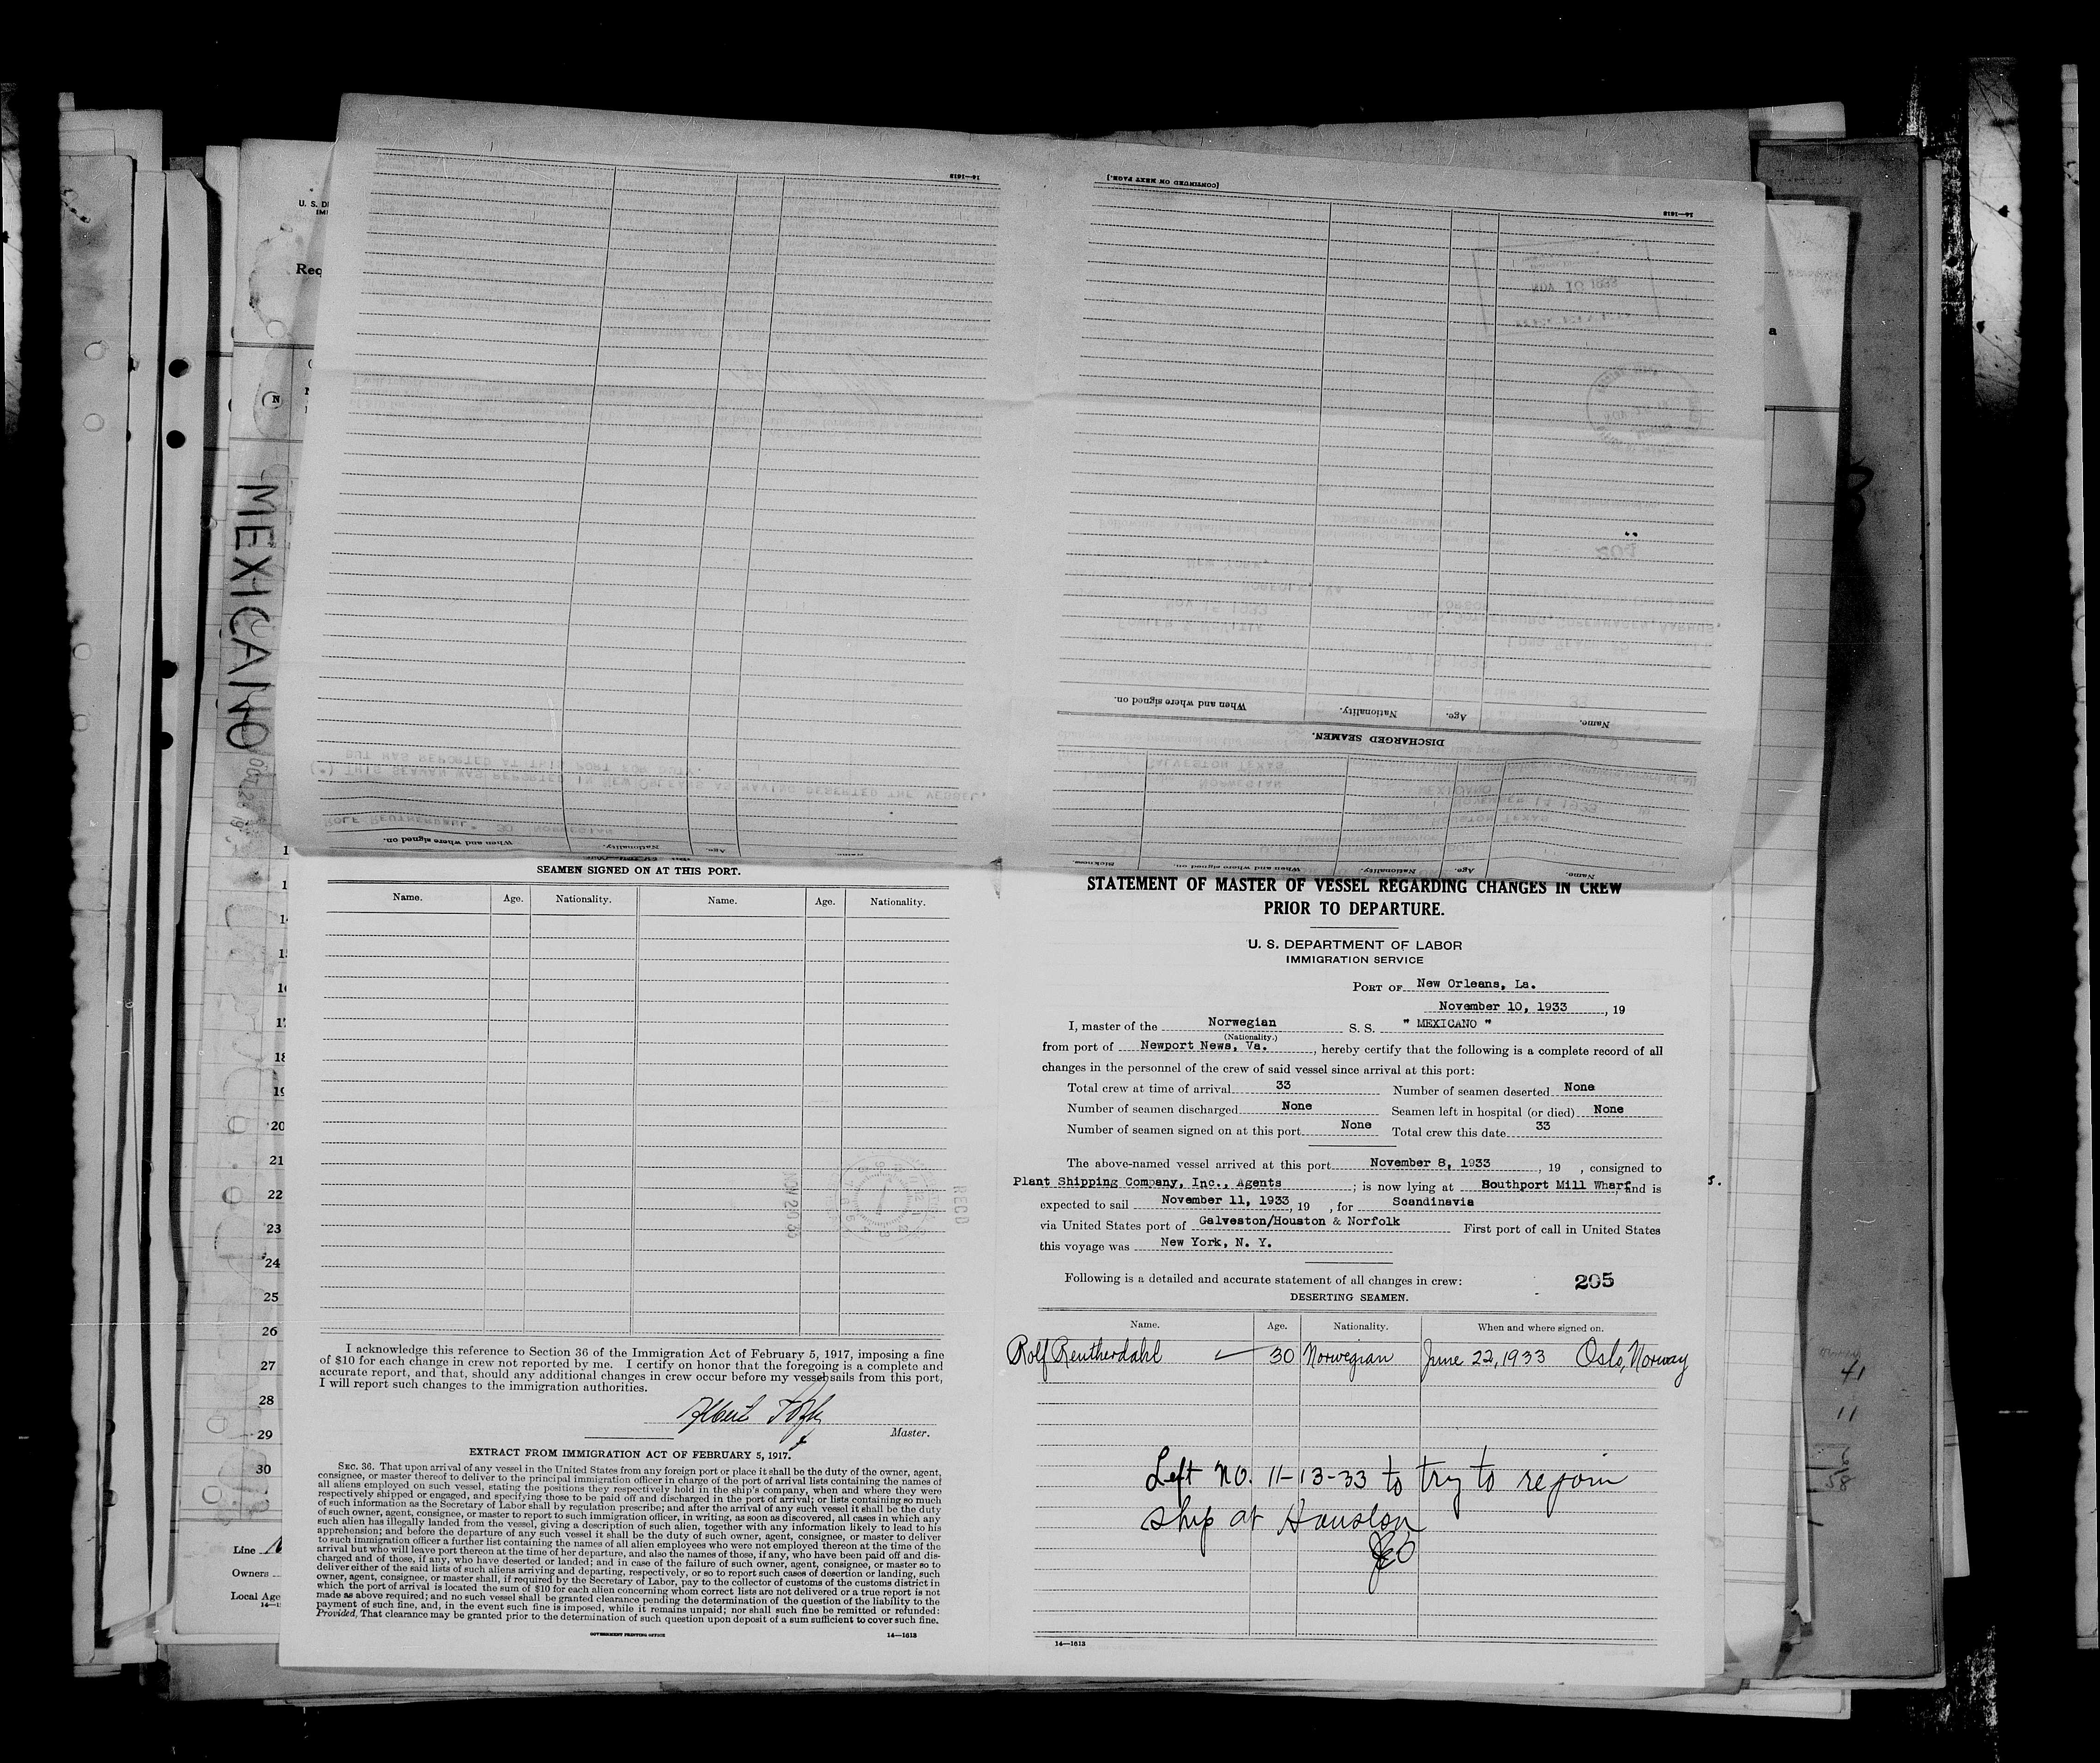 MEXICANO
U. S. DE
Req
14—1613
[CONTINUED ON NEXT PAGE.]
14—1613
NOV 10 1933
When and where signed on.
Nationality.
Age.
Name.
DISCHARGED SEAMEN.
(*) THIS SEAMAN WAS REPORTED IN NEW ORLEANS AS HAVING DESERTED THE VESSEL,
BUT WAS REPORTED AT THIS PORT FOR DUTY.
ROLF REUTHERDAHL. 30 NORWEGIAN
When and where signed on.
Nationality.
Age.
Name.
Sickness.
When and where signed on.
Nationality.
Age.
Name.
SEAMEN SIGNED ON AT THIS PORT.
Name. Age. Nationality. Name. Age. Nationality.
15
18
19
20
21
22
23
24
25
26
27
28
29
30
REC'D
NOV 20 33
I acknowledge this reference to Section 36 of the Immigration Act of February 5, 1917, imposing a fine
of $10 for each change in crew not reported by me. I certify on honor that the foregoing is a complete and
accurate report, and that, should any additional changes in crew occur before my vessel sails from this port,
I will report such changes to the immigration authorities.
Master.
EXTRACT FROM IMMIGRATION ACT OF FEBRUARY 5, 1917.
SEC. 36. That upon arrival of any vessel in the United States from any foreign port or place it shall be the duty of the owner, agent,
consignee, or master thereof to deliver to the principal immigration officer in charge of the port of arrival lists containing the names of
all aliens employed on such vessel, stating the positions they respectively hold in the ship's company, when and where they were
respectively shipped or engaged, and specifying those to be paid off and discharged in the port of arrival; or lists containing so much
of such information as the Secretary of Labor shall by regulation prescribe; and after the arrival of any such vessel it shall be the duty
of such owner, agent, consignee, or master to report to such immigration officer, in writing, as soon as discovered, all cases in which any
such alien has illegally landed from the vessel, giving a description of such alien, together with any information likely to lead to his
apprehension; and before the departure of any such vessel it shall be the duty of such owner, agent, consignee, or master to deliver
to such immigration officer a further list containing the names of all alien employees who were not employed thereon at the time of the
arrival but who will leave port thereon at the time of her departure, and also the names of those, if any, who have been paid off and dis-
charged and of those, if any, who have deserted or landed; and in case of the failure of such owner, agent, consignee, or master so to
deliver either of the said lists of such aliens arriving and departing, respectively, or so to report such cases of desertion or landing, such
owner, agent, consignee, or master shall, if required by the Secretary of Labor, pay to the collector of customs of the customs district in
which the port of arrival is located the sum of $10 for each alien concerning whom correct lists are not delivered or a true report is not
made as above required; and no such vessel shall be granted clearance pending the determination of the question of the liability to the
payment of such fine, and, in the event such fine is imposed, while it remains unpaid; nor shall such fine be remitted or refunded:
Provided, That clearance may be granted prior to the determination of such question upon deposit of a sum sufficient to cover such fine.
GOVERNMENT PRINTING OFFICE 14—1613
Line
Owners
Local Age
STATEMENT OF MASTER OF VESSEL REGARDING CHANGES IN CREW
PRIOR TO DEPARTURE.
U. S. DEPARTMENT OF LABOR
IMMIGRATION SERVICE
PORT OF New Orleans, La.
November 10, 1933, 19
I, master of the Norwegian S. S. " MEXICANO "
(Nationality.)
from port of Newport News, Va., hereby certify that the following is a complete record of all
changes in the personnel of the crew of said vessel since arrival at this port:
Total crew at time of arrival 33 Number of seamen deserted None
Number of seamen discharged None Seamen left in hospital (or died) None
Number of seamen signed on at this port None Total crew this date 33
The above-named vessel arrived at this port November 8, 1933, 19 , consigned to
Plant Shipping Company, Inc., Agents ; is now lying at Southport Mill Wharf, and is
expected to sail November 11, 1933, 19 , for Scandinavia
via United States port of Galveston/Houston & Norfolk First port of call in United States
this voyage was New York, N. Y.
Following is a detailed and accurate statement of all changes in crew: 205
DESERTING SEAMEN.
Name. Age. Nationality. When and where signed on.
Rolf Reutherdahl ✓ 30 Norwegian June 22, 1933 Oslo, Norway
Left N.O. 11-13-33 to try to rejoin
ship at Houston
14—1613
41
11